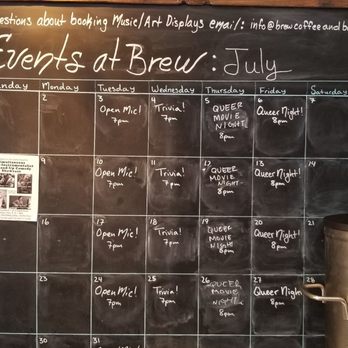 estions about booking Music/Art Displays email: info@brewcoffeeandb
Events at Brew: July
nday Monday Tuesday Wednesday Thursday Friday Saturday
2 3 4 5 6 7
Open Mic! 7pm
Trivia! 7pm
QUEER MOVIE NIGHT 8pm
Queer Night! 8pm
9 10 11 12 13 14
Open Mic! 7pm
Trivia! 7pm
QUEER MOVIE NIGHT 8pm
Queer Night! 8pm
16 17 18 19 20
Open Mic! 7pm
Trivia! 7pm
QUEER MOVIE NIGHT 8pm
Queer Night! 8pm
23 24 25 26 27 28
Open Mic! 7pm
Trivia! 7pm
QUEER MOVIE NIGHT 8pm
Queer Night 8pm
30 31